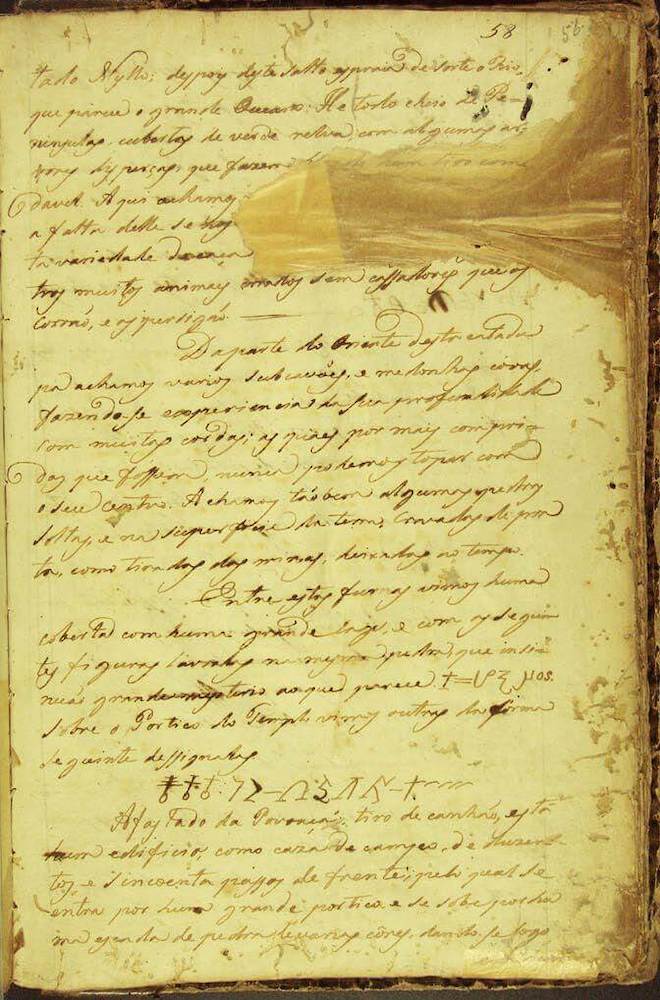 58
56
tado Nyllo; depoy deste salto espraia de sorte o Rio,
que parece o grande Occeano: He todo cheio de Pe-
ninsulas cubertas de verde relva, com algumas ar-
vores dispersas, que fazem hum tiro com
davel. Aqui achamos
a falta delle se
ta variedade de caça
tros muitos animaes criados sem cassadores que os
corraõ, e os persigaõ.
Da parte do Oriente desta catadu
pa achamos varios subcavões, e medonhas covas,
fazendo-se experiencia da sua profundidade
com muitas cordas; as quaes por mais compri-
das que fossem nunca podemos topar com
o seu centro. Achamos taõbem algumas pedras
soltas, e na superficie da terra, cravadas de pra
ta, como tiradas das minas, deixadas ao tempo.
Entre estas furnas vimos huma
coberta com huma grande lage, e com as seguin
tes figuras lavradas na mesma pedra, que insi-
nuaõ grande misterio ao que parece
Sobre o Portico do Templo vimos outras da forma
seguinte dessignadas
Afastado da Povoaçaõ, tiro de canhaõ, está
hum edificio, como caza de campo, de duzen-
tos e sincoenta passos de frente; pelo qual se
entra por hum grande portico, e se sobe por hu
ma escada de pedra de varias côres, dando-se logo